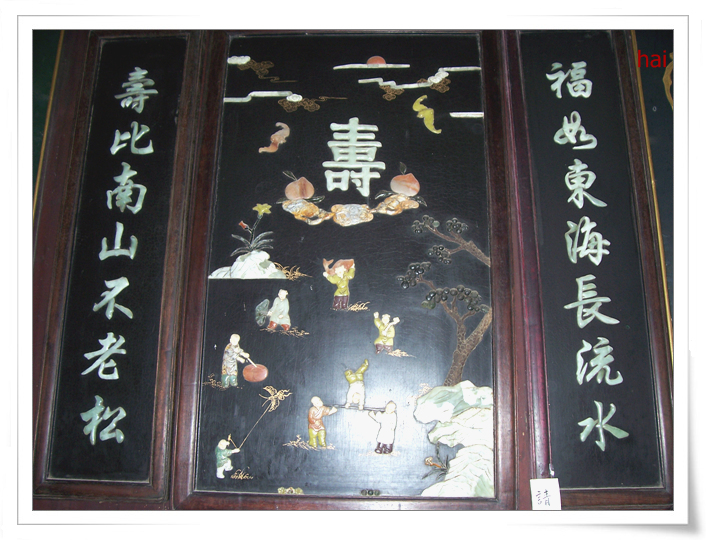 福如東海長流水
壽
壽比南山不老松
hai
請